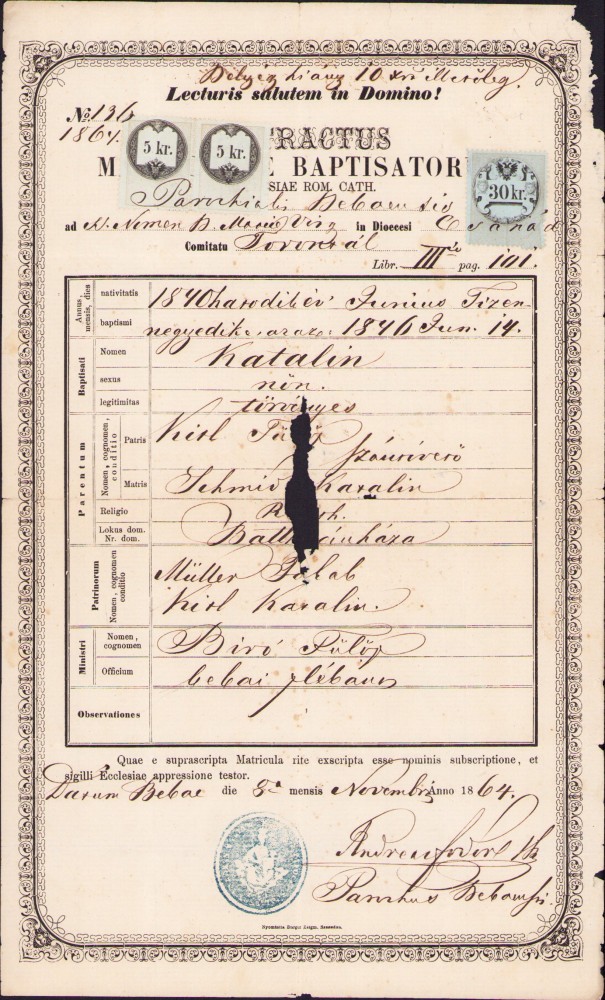 Bélyeg hiány 10 xr
Lecturis salutem in Domino!
№ 136
1864.
RACTUS
M E BAPTISATOR
5 kr. 5 kr.
30 kr.
SIAE ROM. CATH.
Parochiali Bebaensis
ad N. Nomen B. Mariae Virg in Dioecesi Csanád
Comitatu Torontál
Libr. III pag. 101.
Annus, mensis, dies
nativitatis 1840 Junius Tizen-
baptismi negyedike 1846 Jun. 14.
Baptisati
Nomen Katalin
sexus nőn.
legitimitas törvényes
Parentum
Nomen, cognomen, conditio
Patris Kisl Fülöp
Matris Schmid Katalin
Religio R th.
Lokus dom. Nr. dom. Batt ánháza
Patrinorum
Nomen, cognomen conditio
Müller Jakab
Kisl Katalin.
Ministri
Nomen, cognomen Biró Fülöp
Officium bebai plébános
Observationes
Quae e suprascripta Matricula rite exscripta esse nominis subscriptione, et
sigilli Ecclesiae appressione testor.
Datum Bebae die 8a mensis Novembri Anno 1864.
Parochus Bebaensis